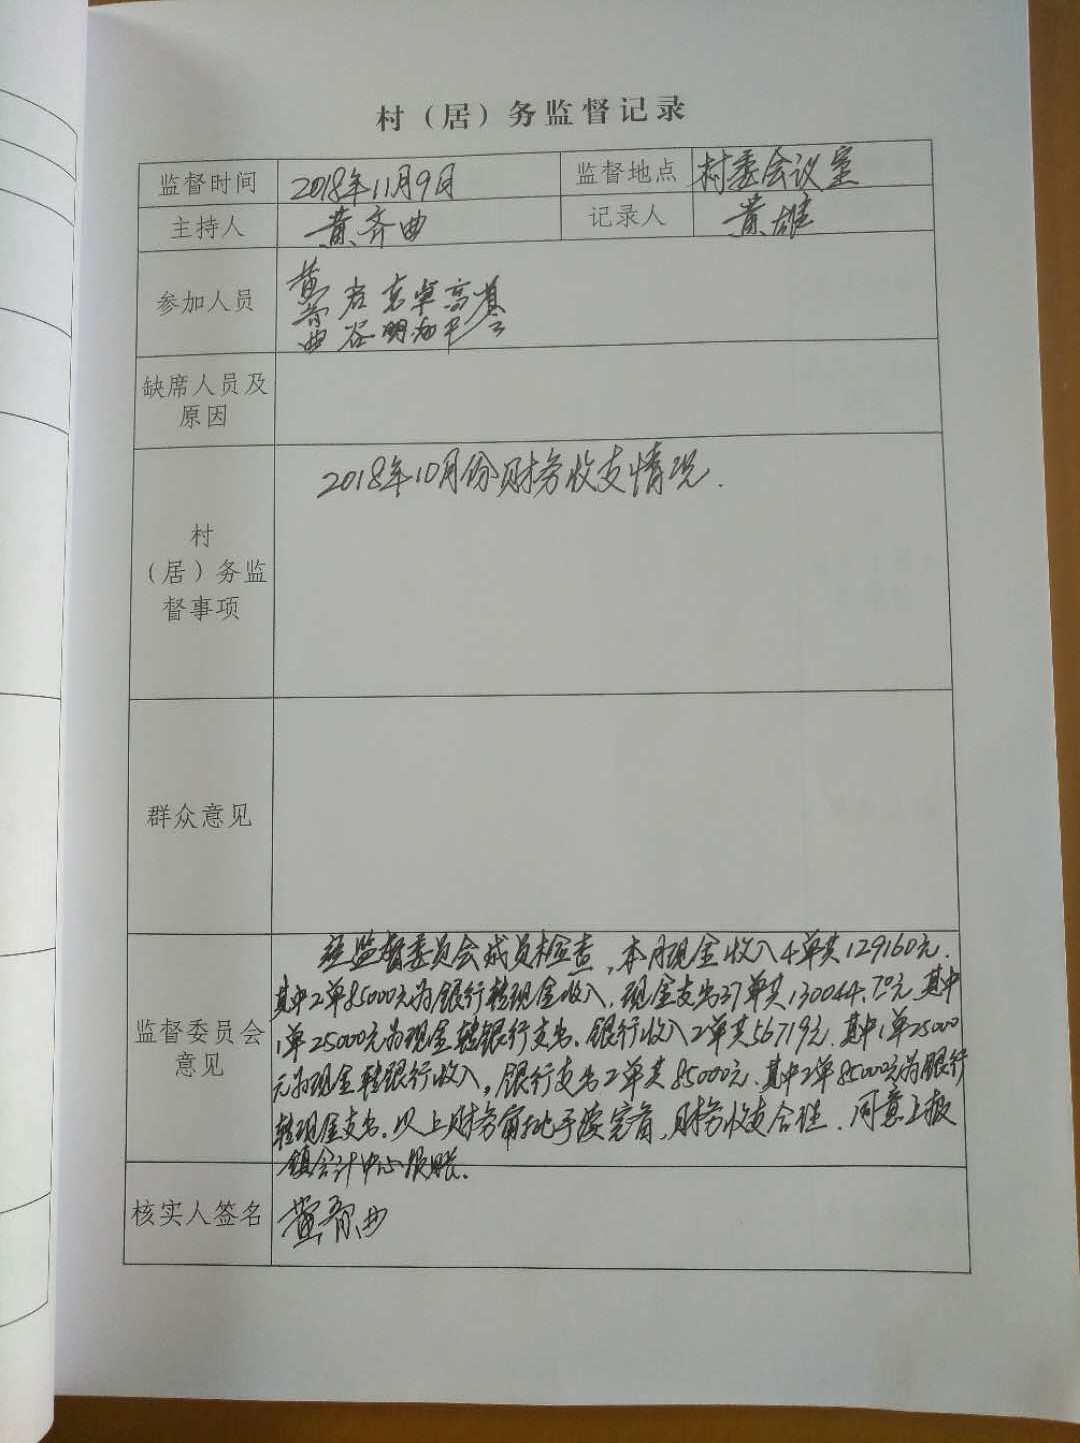 村（居）务监督记录
监督时间 2018年11月9日 监督地点 村委会议室
主持人 黄齐曲 记录人 黄雄
参加人员
缺席人员及
原因
2018年10月份财务收支情况.
村
（居）务监
督事项
群众意见
经监督委员会成员检查,本月现金收入4单共129160元.
其中2单85000元为银行转现金收入.现金支出37单共130044.70元.其中
1单25000元为现金转银行支出.银行收入2单共56719元.其中1单25000
元为现金转银行收入,银行支出2单共85000元.其中2单85000元为银行
转现金支出.以上财务审批手续完备,财务收支合理.同意上报
镇会计中心报账.
监督委员会
意见
核实人签名 黄齐曲